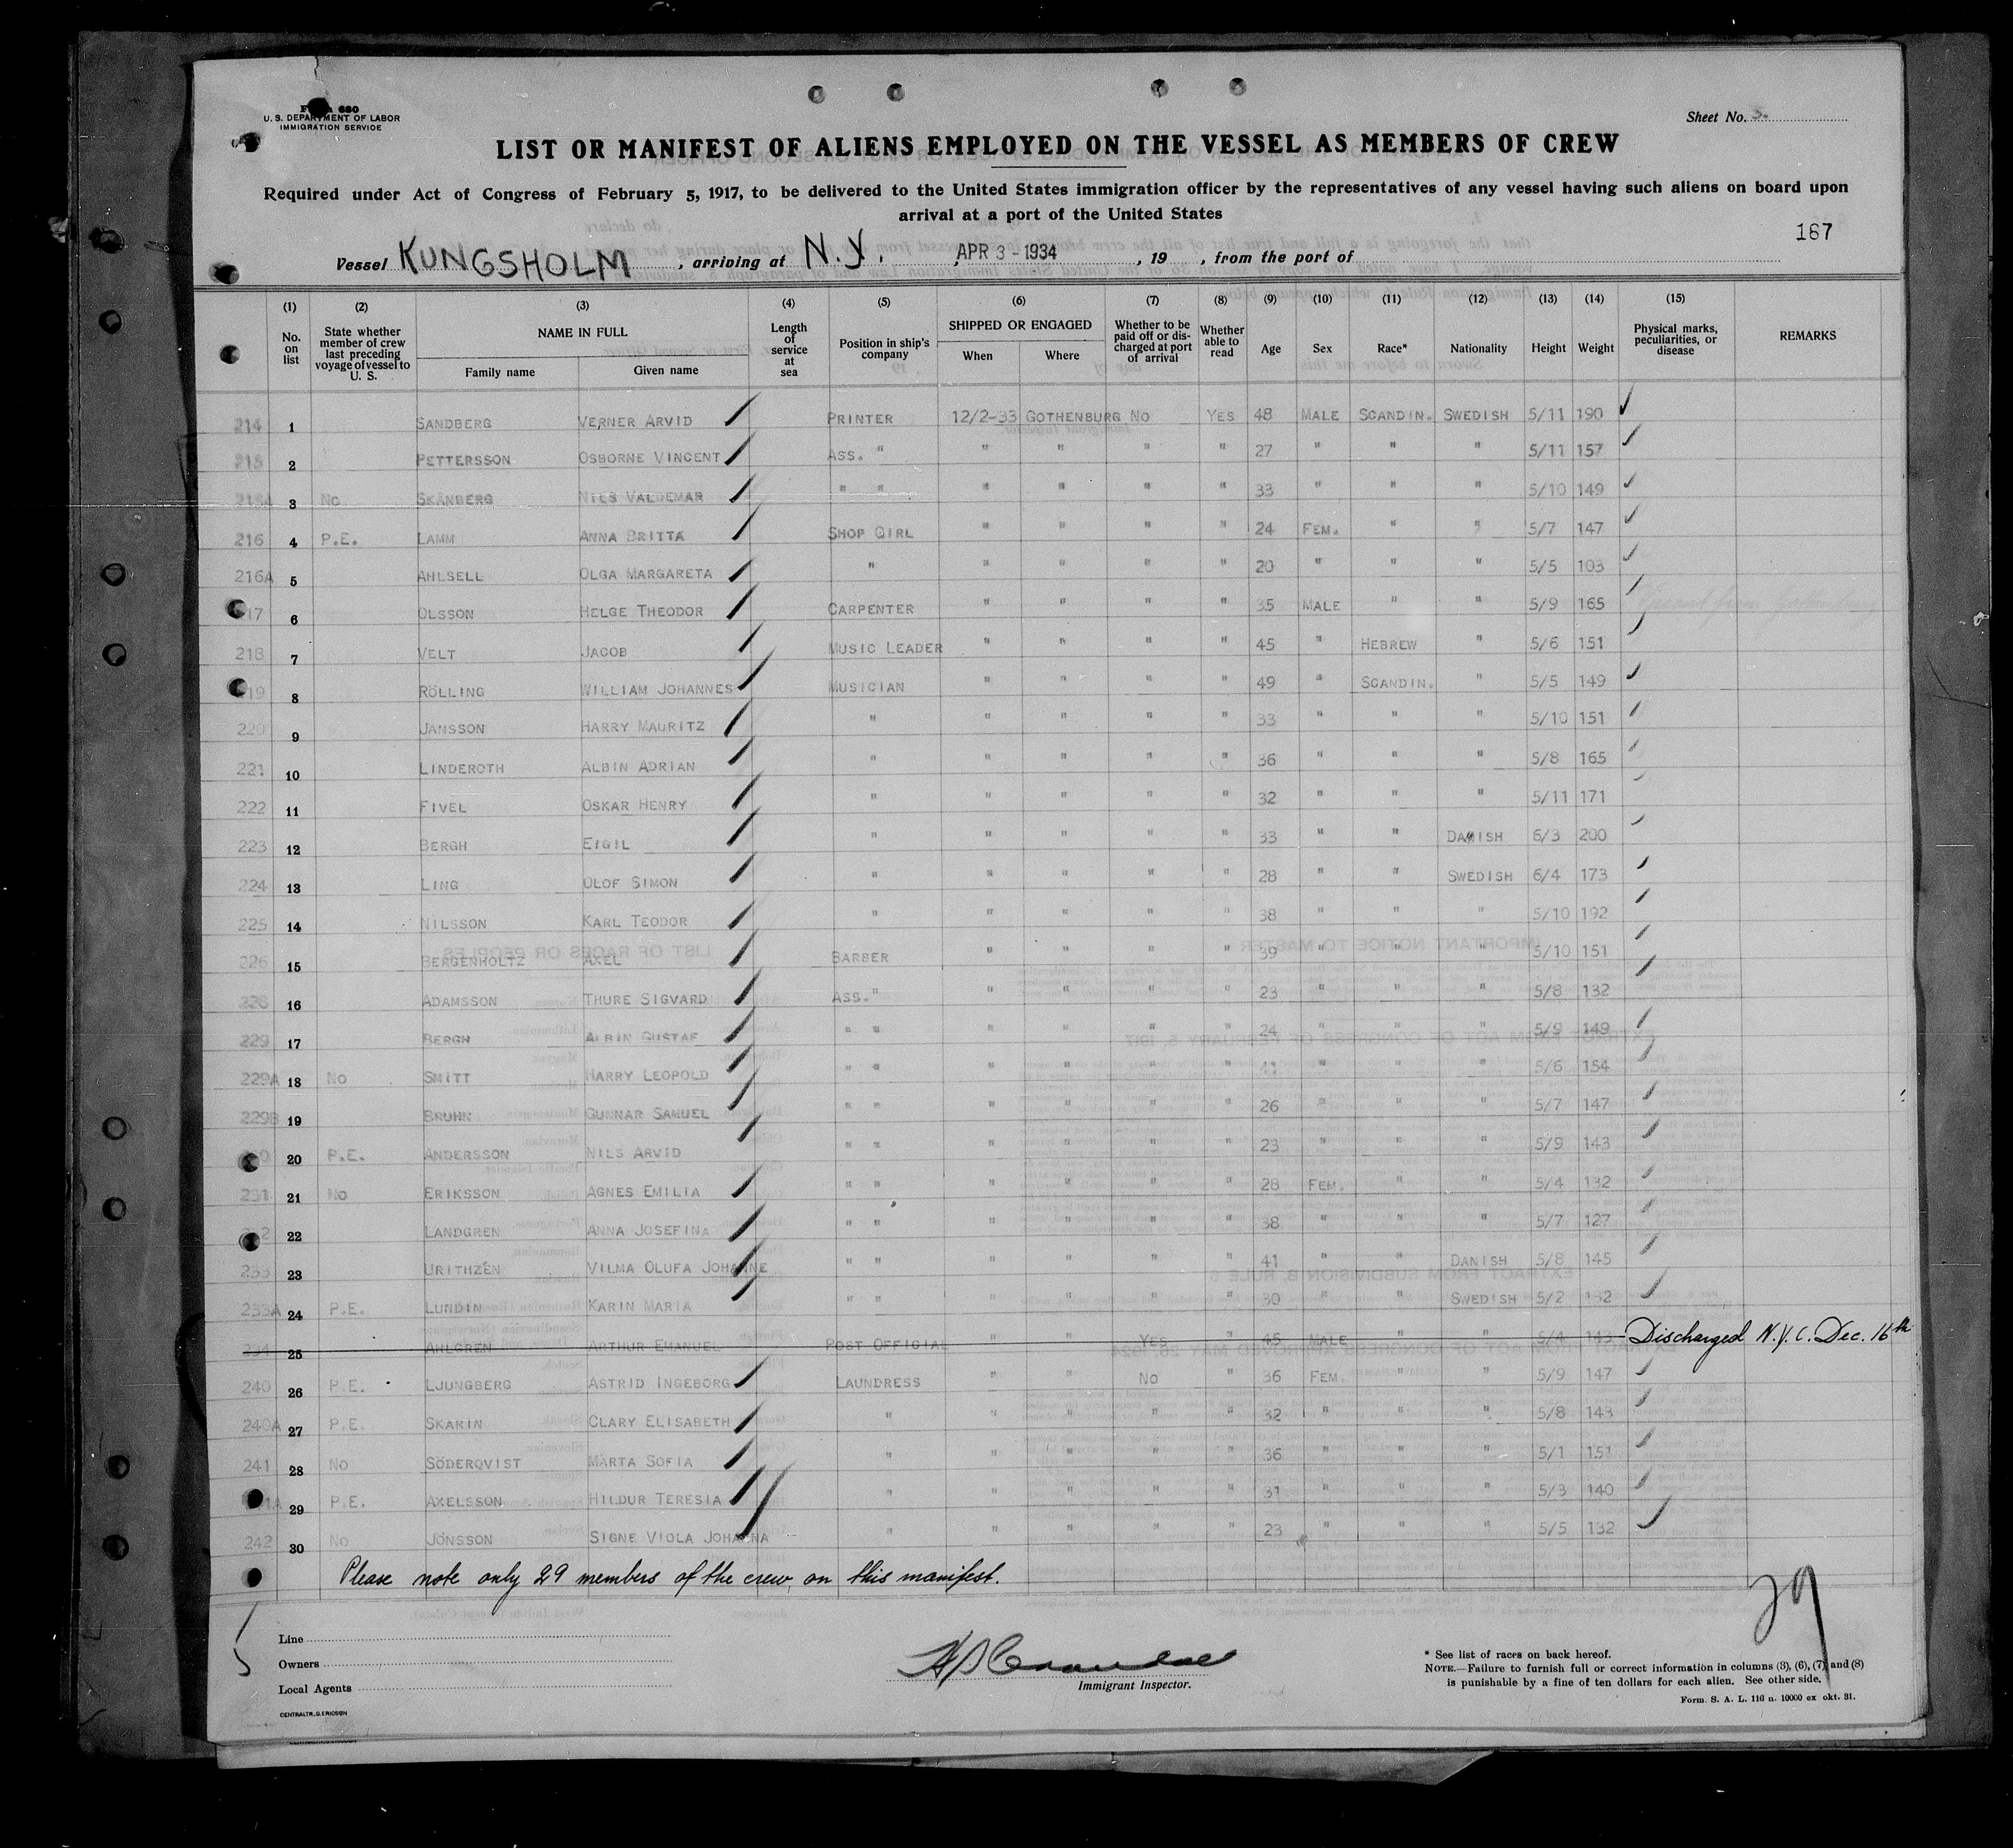 Form 680
U. S. DEPARTMENT OF LABOR
IMMIGRATION SERVICE
Sheet No. 3.
LIST OR MANIFEST OF ALIENS EMPLOYED ON THE VESSEL AS MEMBERS OF CREW
Required under Act of Congress of February 5, 1917, to be delivered to the United States immigration officer by the representatives of any vessel having such aliens on board upon
arrival at a port of the United States
167
Vessel KUNGSHOLM, arriving at N.Y. APR 3 - 1934, 19 , from the port of
(1) (2) (3) (4) (5) (6) (7) (8) (9) (10) (11) (12) (13) (14) (15)
No. on list State whether member of crew last preceding voyage of vessel to U. S. NAME IN FULL Family name Given name Length of service at sea Position in ship's company SHIPPED OR ENGAGED When Where Whether to be paid off or discharged at port of arrival Whether able to read Age Sex Race* Nationality Height Weight Physical marks, peculiarities, or disease REMARKS
214 1 SANDBERG VERNER ARVID PRINTER 12/2-33 GOTHENBURG NO YES 48 MALE SCANDIN. SWEDISH 5/11 190
215 2 PETTERSSON OSBORNE VINCENT ASS. " " " " " 27 " " " 5/11 157
215A 3 NO SKÅNBERG NILS VALDEMAR " " " " " " 33 " " " 5/10 149
216 4 P.E. LAMM ANNA BRITTA SHOP GIRL " " " " 24 FEM. " " 5/7 147
216A 5 AHLSELL OLGA MARGARETA " " " " " 20 " " " 5/5 103
217 6 OLSSON HELGE THEODOR CARPENTER " " " " 35 MALE " " 5/9 165
218 7 VELT JACOB MUSIC LEADER " " " " 45 " HEBREW " 5/6 151
219 8 RÖLLING WILLIAM JOHANNES MUSICIAN " " " " 49 " SCANDIN. " 5/5 149
220 9 JANSSON HARRY MAURITZ " " " " " 33 " " " 5/10 151
221 10 LINDEROTH ALBIN ADRIAN " " " " " 36 " " " 5/8 165
222 11 FIVEL OSKAR HENRY " " " " " 32 " " " 5/11 171
223 12 BERGH EIGIL " " " " " 33 " " DANISH 6/3 200
224 13 LING OLOF SIMON " " " " " 28 " " SWEDISH 6/4 173
225 14 NILSSON KARL TEODOR " " " " " 38 " " " 5/10 192
226 15 BERGENHOLTZ AXEL BARBER " " " " 39 " " " 5/10 151
228 16 ADAMSSON THURE SIGVARD ASS. " " " " " 23 " " " 5/8 132
229 17 BERGH ALBIN GUSTAF " " " " " " 24 " " " 5/9 149
229A 18 NO SMITT HARRY LEOPOLD " " " " " " 41 " " " 5/6 154
229B 19 BRUHN GUNNAR SAMUEL " " " " " " 26 " " " 5/7 147
230 20 P.E. ANDERSSON NILS ARVID " " " " " " 23 " " " 5/9 143
231 21 NO ERIKSSON AGNES EMILIA " " " " " " 28 FEM. " " 5/4 132
232 22 LANDGREN ANNA JOSEFINA " " " " " " 38 " " " 5/7 127
233 23 URITHZÉN VILMA OLUFA JOHANNE " " " " " " 41 " " DANISH 5/8 145
233A 24 P.E. LUNDIN KARIN MARIA " " " " " " 30 " " SWEDISH 5/2 132
234 25 AHLGREN ARTHUR EMANUEL POST OFFICIAL " " YES " 45 MALE " " 5/4 143 Discharged N.Y.C. Dec. 16th
240 26 P.E. LJUNGBERG ASTRID INGEBORG LAUNDRESS " " NO " 36 FEM. " " 5/9 147
240A 27 P.E. SKARIN CLARY ELISABETH " " " " " 32 " " " 5/8 143
241 28 NO SÖDERQVIST MÄRTA SOFIA " " " " " 36 " " " 5/1 151
241A 29 P.E. AXELSSON HILDUR TERESIA " " " " " 31 " " " 5/3 140
242 30 NO JÖNSSON SIGNE VIOLA JOHANNA " " " " " 23 " " " 5/5 132
Please note only 29 members of the crew on this manifest.
29
Line
Owners
Local Agents
Immigrant Inspector.
* See list of races on back hereof.
NOTE.—Failure to furnish full or correct information in columns (3), (6), (7) and (8)
is punishable by a fine of ten dollars for each alien. See other side.
Form. S. A. L. 116 n. 10000 ex okt. 31.
CENTRALTR., G. ERICSON